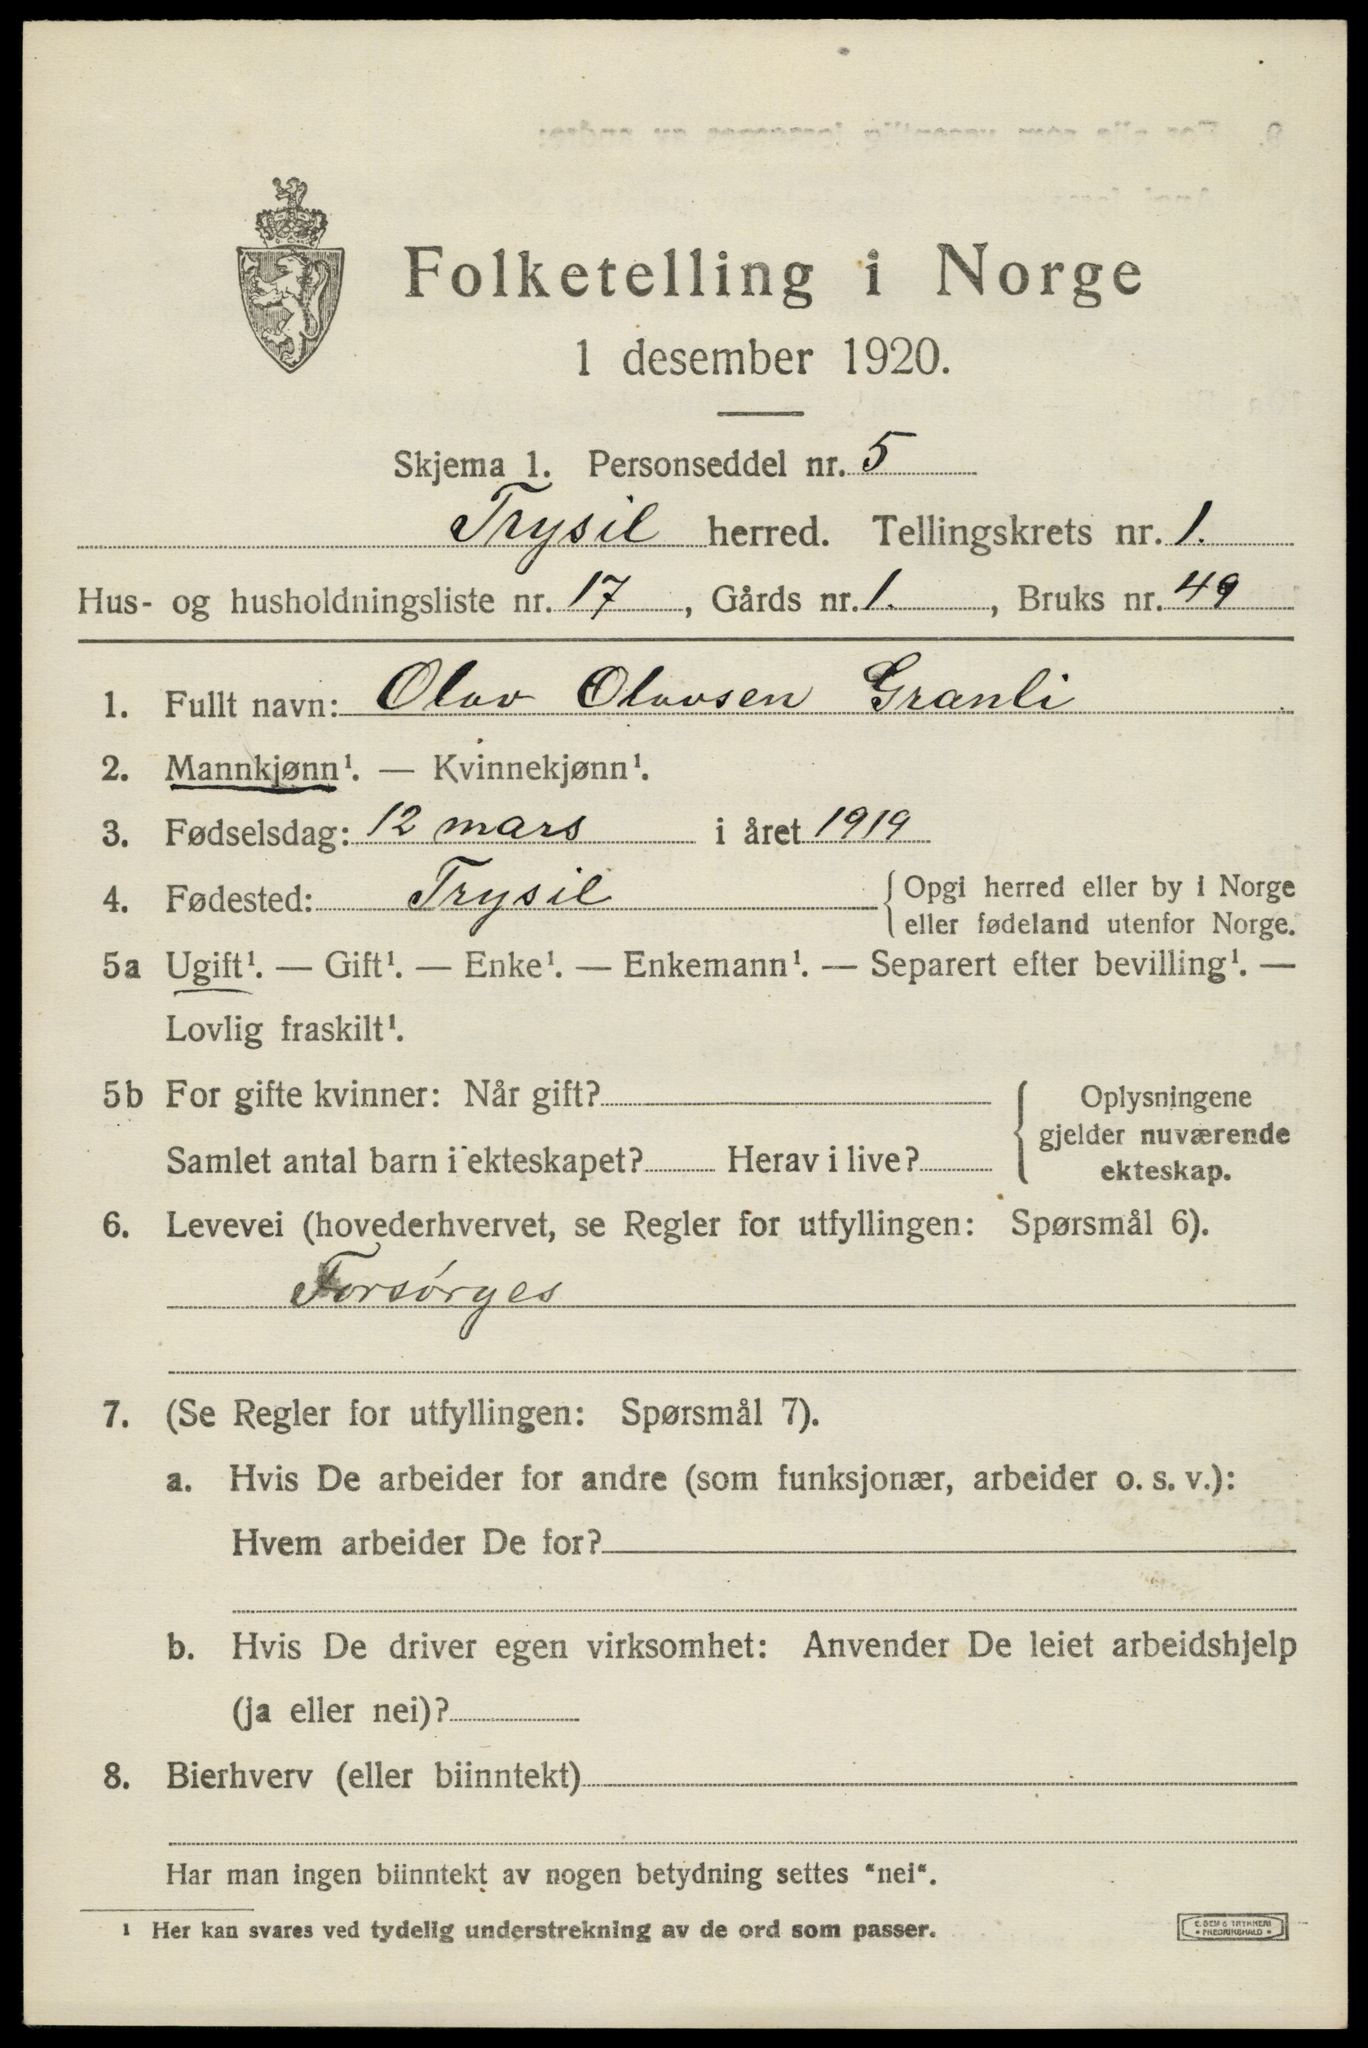 Folketelling i Norge
1 desember 1920.
Skjema 1. Personseddel nr. 5
Trysil herred. Tellingskrets nr. 1.
Hus- og husholdningsliste nr. 17, Gårds nr. 1., Bruks nr. 49
1. Fullt navn: Olav Olavsen Granli
2. Mannkjønn¹. — Kvinnekjønn¹.
3. Fødselsdag: 12 mars i året 1919
4. Fødested: Trysil { Opgi herred eller by i Norge
eller fødeland utenfor Norge.
5a Ugift¹. — Gift¹. — Enke¹. — Enkemann¹. — Separert efter bevilling¹. —
Lovlig fraskilt¹.
5b For gifte kvinner: Når gift?
Samlet antal barn i ekteskapet? Herav i live?
Oplysningene
gjelder nuværende
ekteskap.
6. Levevei (hovederhvervet, se Regler for utfyllingen: Spørsmål 6).
Forsørges
7. (Se Regler for utfyllingen: Spørsmål 7).
a. Hvis De arbeider for andre (som funksjonær, arbeider o. s. v.):
Hvem arbeider De for?
b. Hvis De driver egen virksomhet: Anvender De leiet arbeidshjelp
(ja eller nei)?
8. Bierhverv (eller biinntekt)
Har man ingen biinntekt av nogen betydning settes "nei".
¹ Her kan svares ved tydelig understrekning av de ord som passer.
TRYKKERI
FREDRIKSHALD